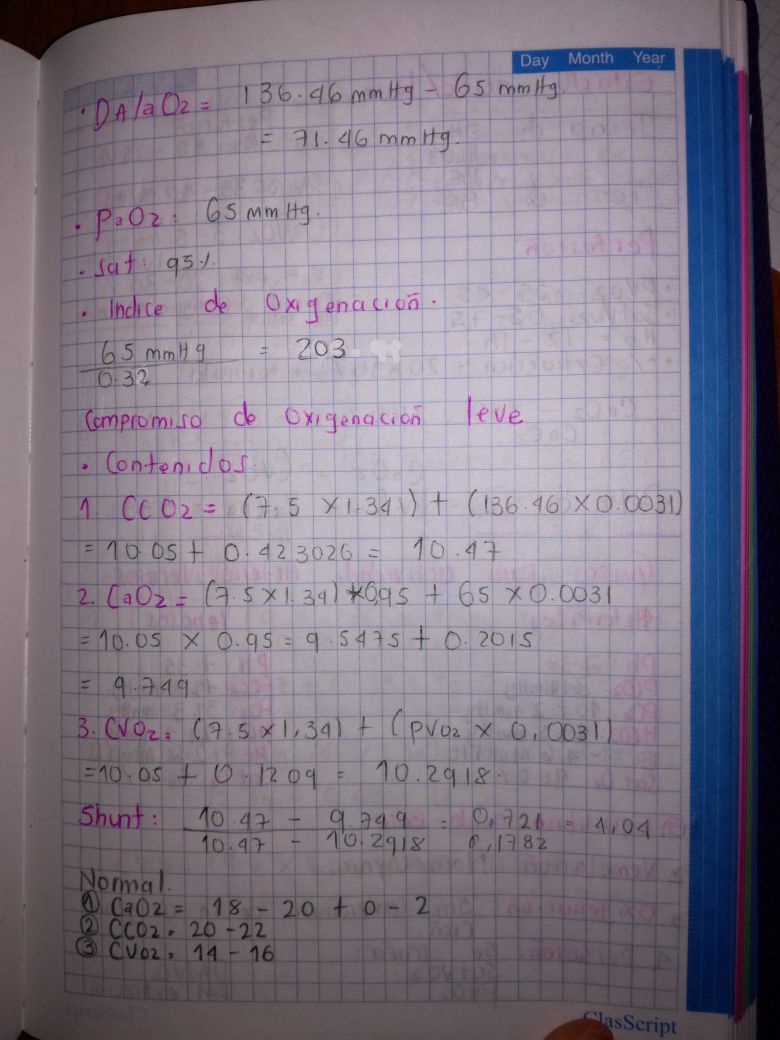 Day Month Year
• DA/aO2 = 136.46 mmHg - 65 mmHg
= 71.46 mmHg.
• PaO2: 65 mmHg.
• Sat: 95%
• Indice de Oxigenación.
65 mmHg = 203
0.32
Compromiso de Oxigenación leve
• Contenidos.
1. CCO2 = (7.5 x 1.34) + (136.46 x 0.0031)
= 10.05 + 0.423026 = 10.47
2. CaO2 = (7.5 x 1.34) x 0.95 + 65 x 0.0031
= 10.05 x 0.95 = 9.5475 + 0.2015
= 9.749
3. CVO2 = (7.5 x 1,34) + (PVO2 x 0,0031)
= 10.05 + 0.1209 = 10.2918.
Shunt: 10.47 - 9.749 = 0,721 = 4,04
10.47 - 10.2918 0,1782
Normal.
① CaO2 = 18 - 20 + 0 - 2
② CCO2 = 20 - 22
③ CVO2 = 14 - 16
ClasScript